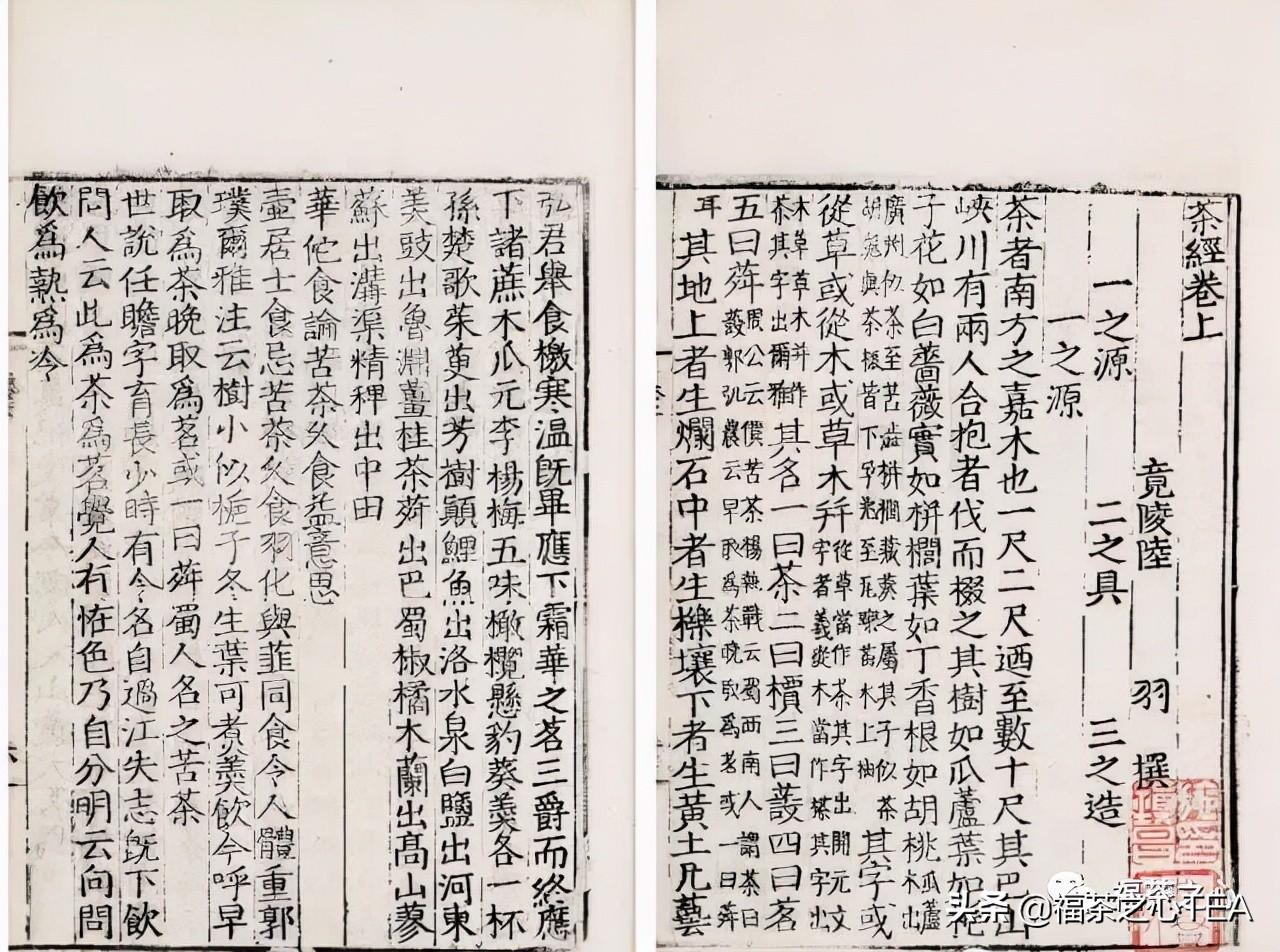 茶經卷上
竟陵陸 羽 撰
一之源 二之具 三之造
一之源
茶者南方之嘉木也一尺二尺迺至數十尺其巴山
峽川有兩人合抱者伐而掇之其樹如瓜蘆葉如梔
子花如白薔薇實如栟櫚葉如丁香根如胡桃瓜蘆木出
廣州似茶至苦澁栟櫚蒲葵之屬其子似茶胡桃與茶根皆下孕兆至瓦礫苗木上抽其字或
從草或從木或草木并從草當作茶其字出開元文字音義從木當作𣘻其字出
本草草木并作荼其字出爾雅其名一曰茶二曰檟三曰蔎四曰茗
五曰荈周公云檟苦茶楊執戟云蜀西南人謂茶曰蔎郭弘農云早取爲茶晚取爲茗或一曰荈
耳其地上者生爛石中者生櫟壤下者生黃土凡藝
弘君舉食檄寒溫旣畢應下霜華之茗三爵而終應
下諸蔗木瓜元李楊梅五味橄欖懸豹葵羹各一杯
孫楚歌茱萸出芳樹顚鯉魚出洛水泉白鹽出河東
美豉出魯淵薑桂茶荈出巴蜀椒橘木蘭出高山蓼
蘇出溝渠精稗出中田
華佗食論苦茶久食益意思
壺居士食忌苦茶久食羽化與韭同食令人體重郭
璞爾雅注云樹小似梔子冬生葉可煮羹飲今呼早
取爲茶晚取爲茗或一曰荈蜀人名之苦茶
世說任瞻字育長少時有令名自過江失志旣下飲
問人云此爲茶爲茗覺人有恠色乃自分明云向問
飲爲熱爲冷
头条 @福茶艺心TEA